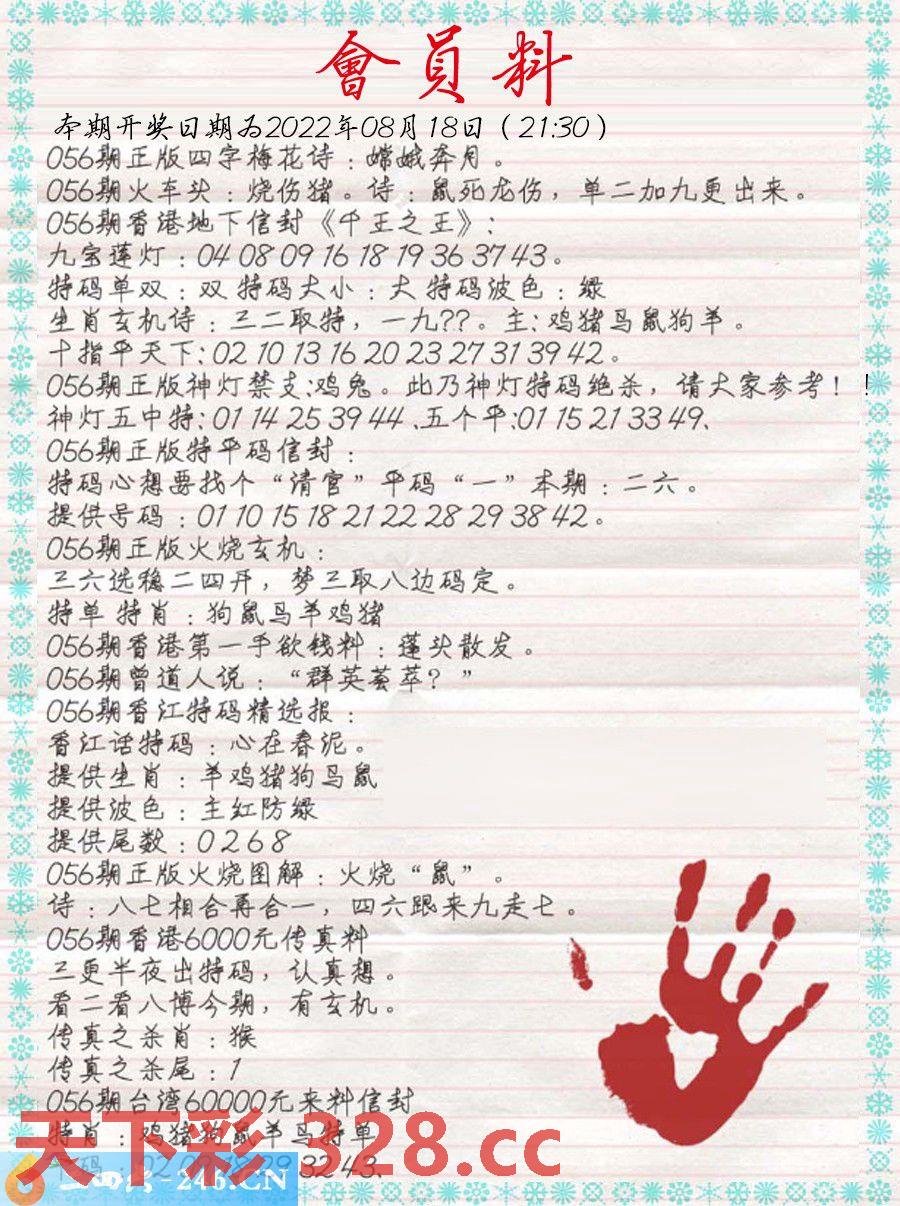 會員料
本期开奖日期为2022年08月18日（21:30）
056期正版四字梅花诗：嫦娥奔月。
056期火车头：烧伤猪。诗：鼠死龙伤，单二加九更出来。
056期香港地下信封《千王之王》：
九宝莲灯：04 08 09 16 18 19 36 37 43。
特码单双：双 特码大小：大 特码波色：绿
生肖玄机诗：三二取特，一九??。主: 鸡猪马鼠狗羊。
十指平天下: 02 10 13 16 20 23 27 31 39 42。
056期正版神灯禁支:鸡兔。此乃神灯特码绝杀，请大家参考！！
神灯五中特: 01 14 25 39 44 、五个平:01 15 21 33 49、
056期正版特平码信封：
特码心想要找个“清官”平码“一”本期：二六。
提供号码：01 10 15 18 21 22 28 29 38 42。
056期正版火烧玄机：
三六选稳二四开，梦三取八边码定。
特单 特肖：狗鼠马羊鸡猪
056期香港第一手欲钱料：蓬头散发。
056期曾道人说：“群英荟萃？”
056期香江特码精选报：
香江话特码：心在春泥。
提供生肖：羊鸡猪狗马鼠
提供波色：主红防绿
提供尾数：0 2 6 8
056期正版火烧图解：火烧“鼠”。
诗：八七相合再合一，四六跟来九走七。
056期香港6000元传真料
三更半夜出特码，认真想。
看二看八博今期，有玄机。
传真之杀肖：猴
传真之杀尾：1
056期台湾60000元来料信封
特肖：鸡猪狗鼠羊马特单
天下彩 328.cc
-246.CN